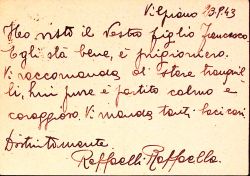 Vilpiano 23.9.43
Ho visto il Vostro figlio Francesco
Egli stà bene, è prigioniero.
Vi raccomanda di stare tranquil-
li, lui pure è partito calmo e
coraggioso. Vi manda tanti baci cari
Distintamente
Raffaelli Raffaella.